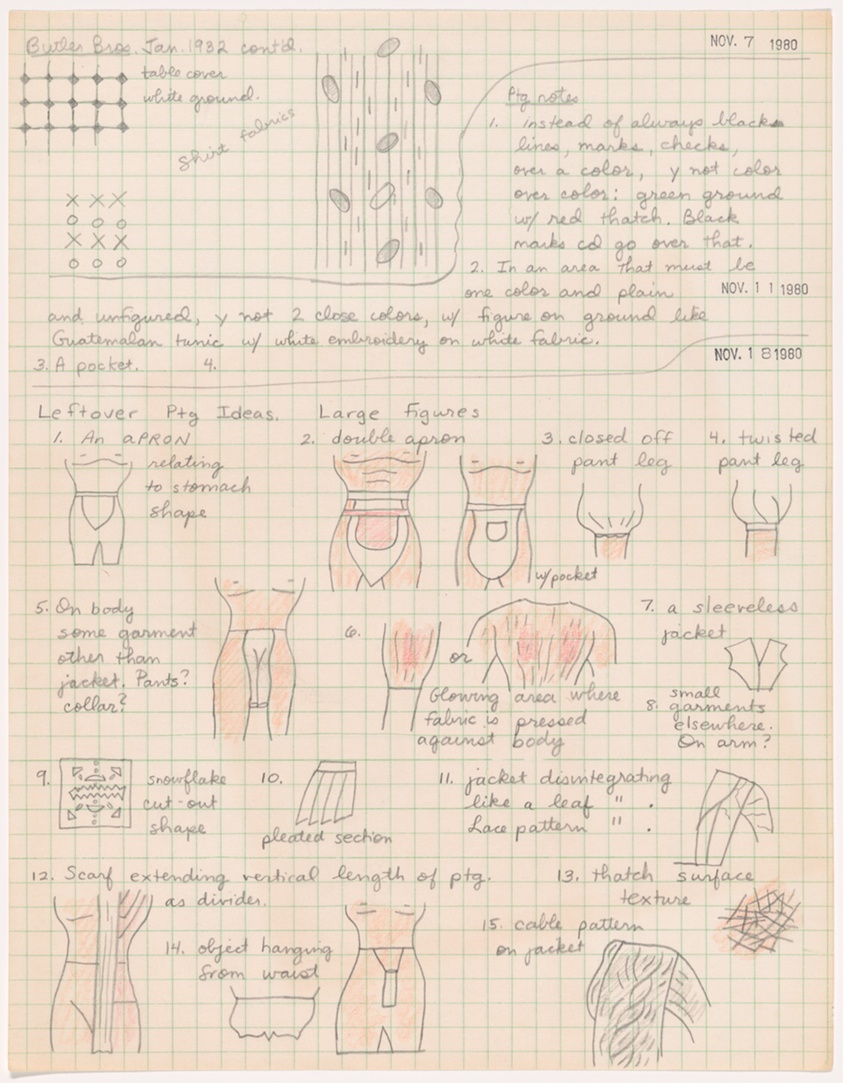 Butler Bros. Jan. 1932 cont'd.
table cover
white ground.
shirt fabrics
x x x
o o o
x x x
o o o
NOV. 7 1980
Ptg notes
1. instead of always black
lines, marks, checks,
over a color, y not color
over color: green ground
w/ red thatch. Black
marks cd go over that.
2. In an area that must be
one color and plain
NOV. 11 1980
and unfigured, y not 2 close colors, w/ figure on ground like
Guatemalan tunic w/ white embroidery on white fabric.
3. A pocket. 4.
NOV. 18 1980
Leftover Ptg Ideas. Large Figures
1. An APRON
relating
to stomach
shape
2. double apron
w/pocket
3. closed off
pant leg
4. twisted
pant leg
5. On body
some garment
other than
jacket. Pants?
collar?
6.
or
Glowing area where
fabric is pressed
against body
7. a sleeveless
jacket
8. small
garments
elsewhere.
On arm?
9.
snowflake
cut-out
shape
10.
pleated section
11. jacket disintegrating
like a leaf " .
Lace pattern " .
12. Scarf extending vertical length of ptg.
as divider.
13. thatch surface
texture
14. object hanging
from waist
15. cable pattern
on jacket